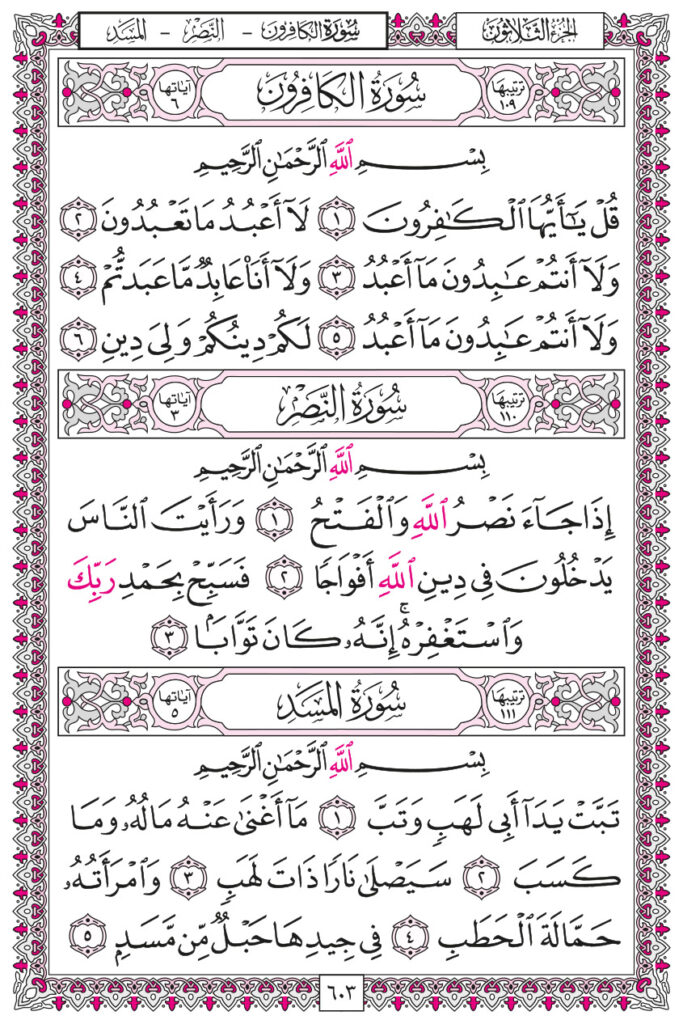 الجزء الثلاثون
سورة الكافرون - النصر - المسد
ترتيبها ١٠٩ سُورَةُ الكَافِرُونَ آياتها ٦
بِسْمِ ٱللَّهِ ٱلرَّحْمَٰنِ ٱلرَّحِيمِ
قُلْ يَٰٓأَيُّهَا ٱلْكَٰفِرُونَ ١ لَآ أَعْبُدُ مَا تَعْبُدُونَ ٢
وَلَآ أَنتُمْ عَٰبِدُونَ مَآ أَعْبُدُ ٣ وَلَآ أَنَا۠ عَابِدٌ مَّا عَبَدتُّمْ ٤
وَلَآ أَنتُمْ عَٰبِدُونَ مَآ أَعْبُدُ ٥ لَكُمْ دِينُكُمْ وَلِىَ دِينِ ٦
ترتيبها ١١٠ سُورَةُ النَّصْرِ آياتها ٣
بِسْمِ ٱللَّهِ ٱلرَّحْمَٰنِ ٱلرَّحِيمِ
إِذَا جَآءَ نَصْرُ ٱللَّهِ وَٱلْفَتْحُ ١ وَرَأَيْتَ ٱلنَّاسَ
يَدْخُلُونَ فِى دِينِ ٱللَّهِ أَفْوَاجًا ٢ فَسَبِّحْ بِحَمْدِ رَبِّكَ
وَٱسْتَغْفِرْهُ ۚ إِنَّهُۥ كَانَ تَوَّابًۢا ٣
ترتيبها ١١١ سُورَةُ المَسَدِ آياتها ٥
بِسْمِ ٱللَّهِ ٱلرَّحْمَٰنِ ٱلرَّحِيمِ
تَبَّتْ يَدَآ أَبِى لَهَبٍ وَتَبَّ ١ مَآ أَغْنَىٰ عَنْهُ مَالُهُۥ وَمَا
كَسَبَ ٢ سَيَصْلَىٰ نَارًا ذَاتَ لَهَبٍ ٣ وَٱمْرَأَتُهُۥ
حَمَّالَةَ ٱلْحَطَبِ ٤ فِى جِيدِهَا حَبْلٌ مِّن مَّسَدٍۭ ٥
٦٠٣